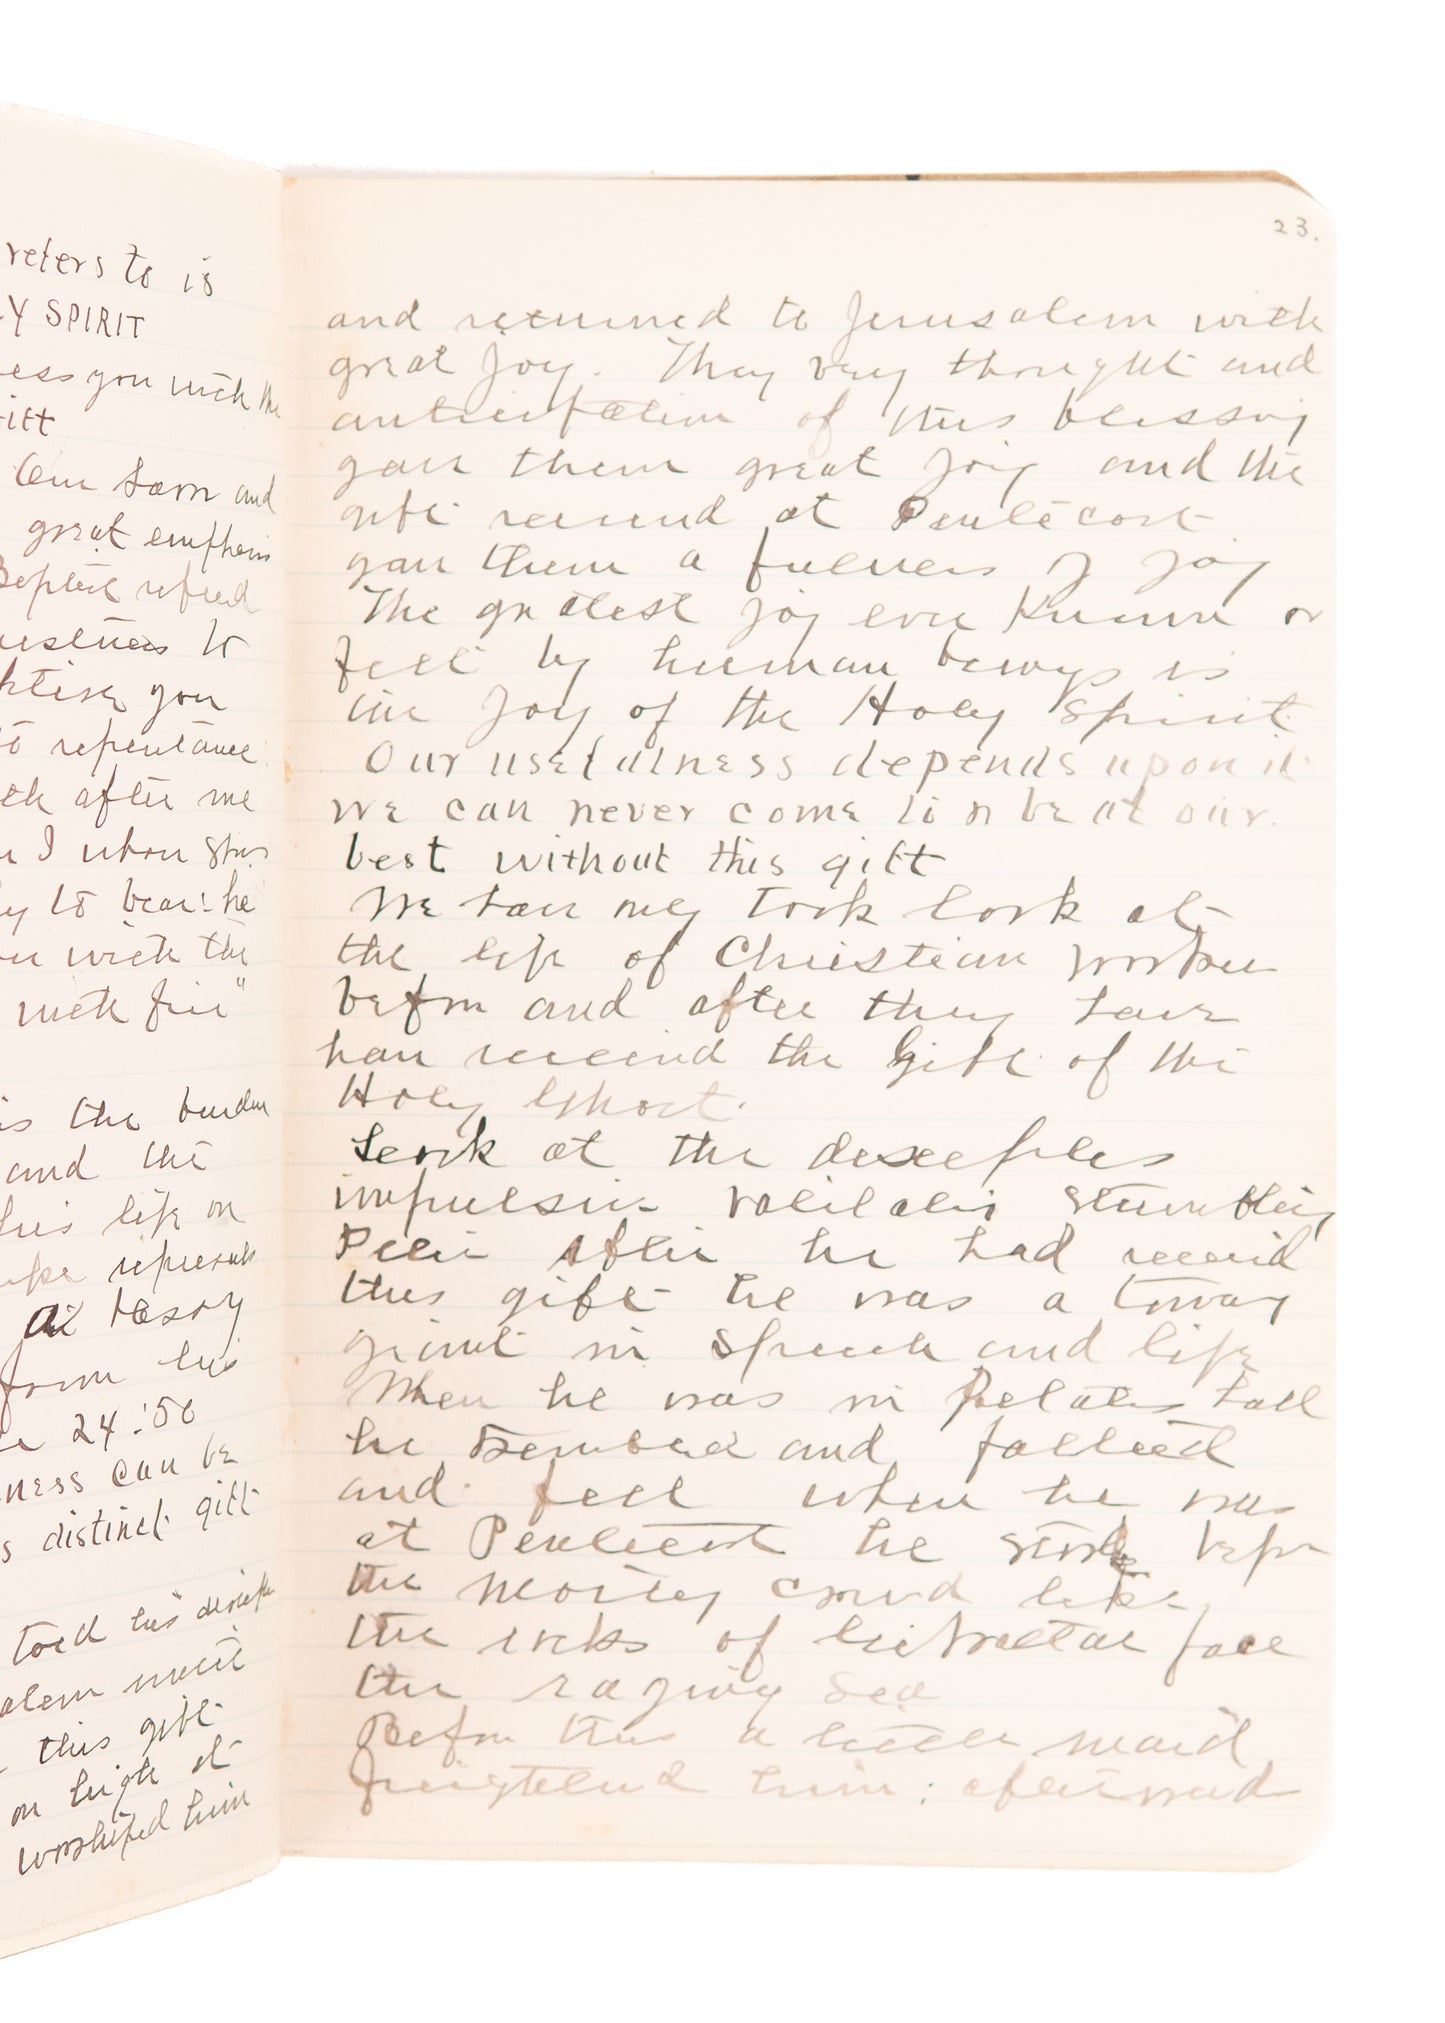 refers to is
Y SPIRIT
ess you with the
ift
and
great emphasis
Baptist refered
to
you
to repentance
after me
I whose shoes
y to bear: he
with the
with fire"
is the burden
and the
his life on
represents
at
from his
24:50
ness can be
s distinct gift
told his disciples
alem until
this gift
on high at
worshiped him
23.
and returned to Jerusalem with
great joy. They very thought and
anticipation of this blessing
gave them great joy and the
gift received at Pentecost
gave them a fulness of joy
The greatest joy ever known or
felt by human beings is
the joy of the Holy Spirit
Our usefulness depends upon it
we can never come to or be at our
best without this gift
We have only took look at
the life of Christian workers
before and after they have
have received the Gift of the
Holy Ghost.
Look at the disciples
impulsive stumbling
Peter After he had received
this gift he was a towering
giant in speech and life
When he was in Pilates hall
he trembled and faltered
and fell when he was
at Pentecost he stood before
the crowd like
the rocks of Gibraltar face
the raging sea
Before this a little maid
frightened him; afterward